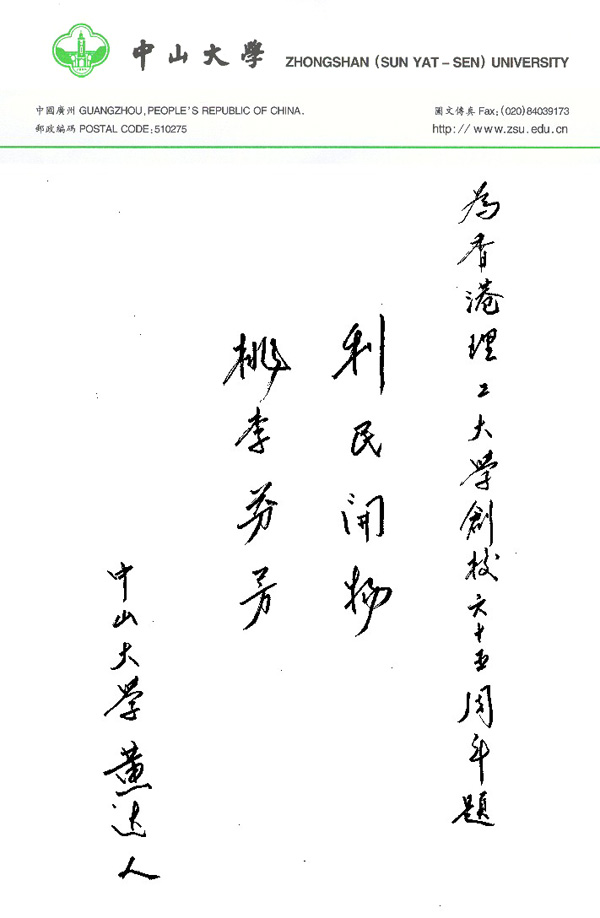 中山大學 ZHONGSHAN (SUN YAT-SEN) UNIVERSITY
中國廣州 GUANGZHOU, PEOPLE'S REPUBLIC OF CHINA.
圖文傳真 Fax:(020)84039173
郵政編碼 POSTAL CODE:510275
http://www.zsu.edu.cn
為香港理工大學創校六十五周年題
利民開物
桃李芬芳
中山大学 黄达人